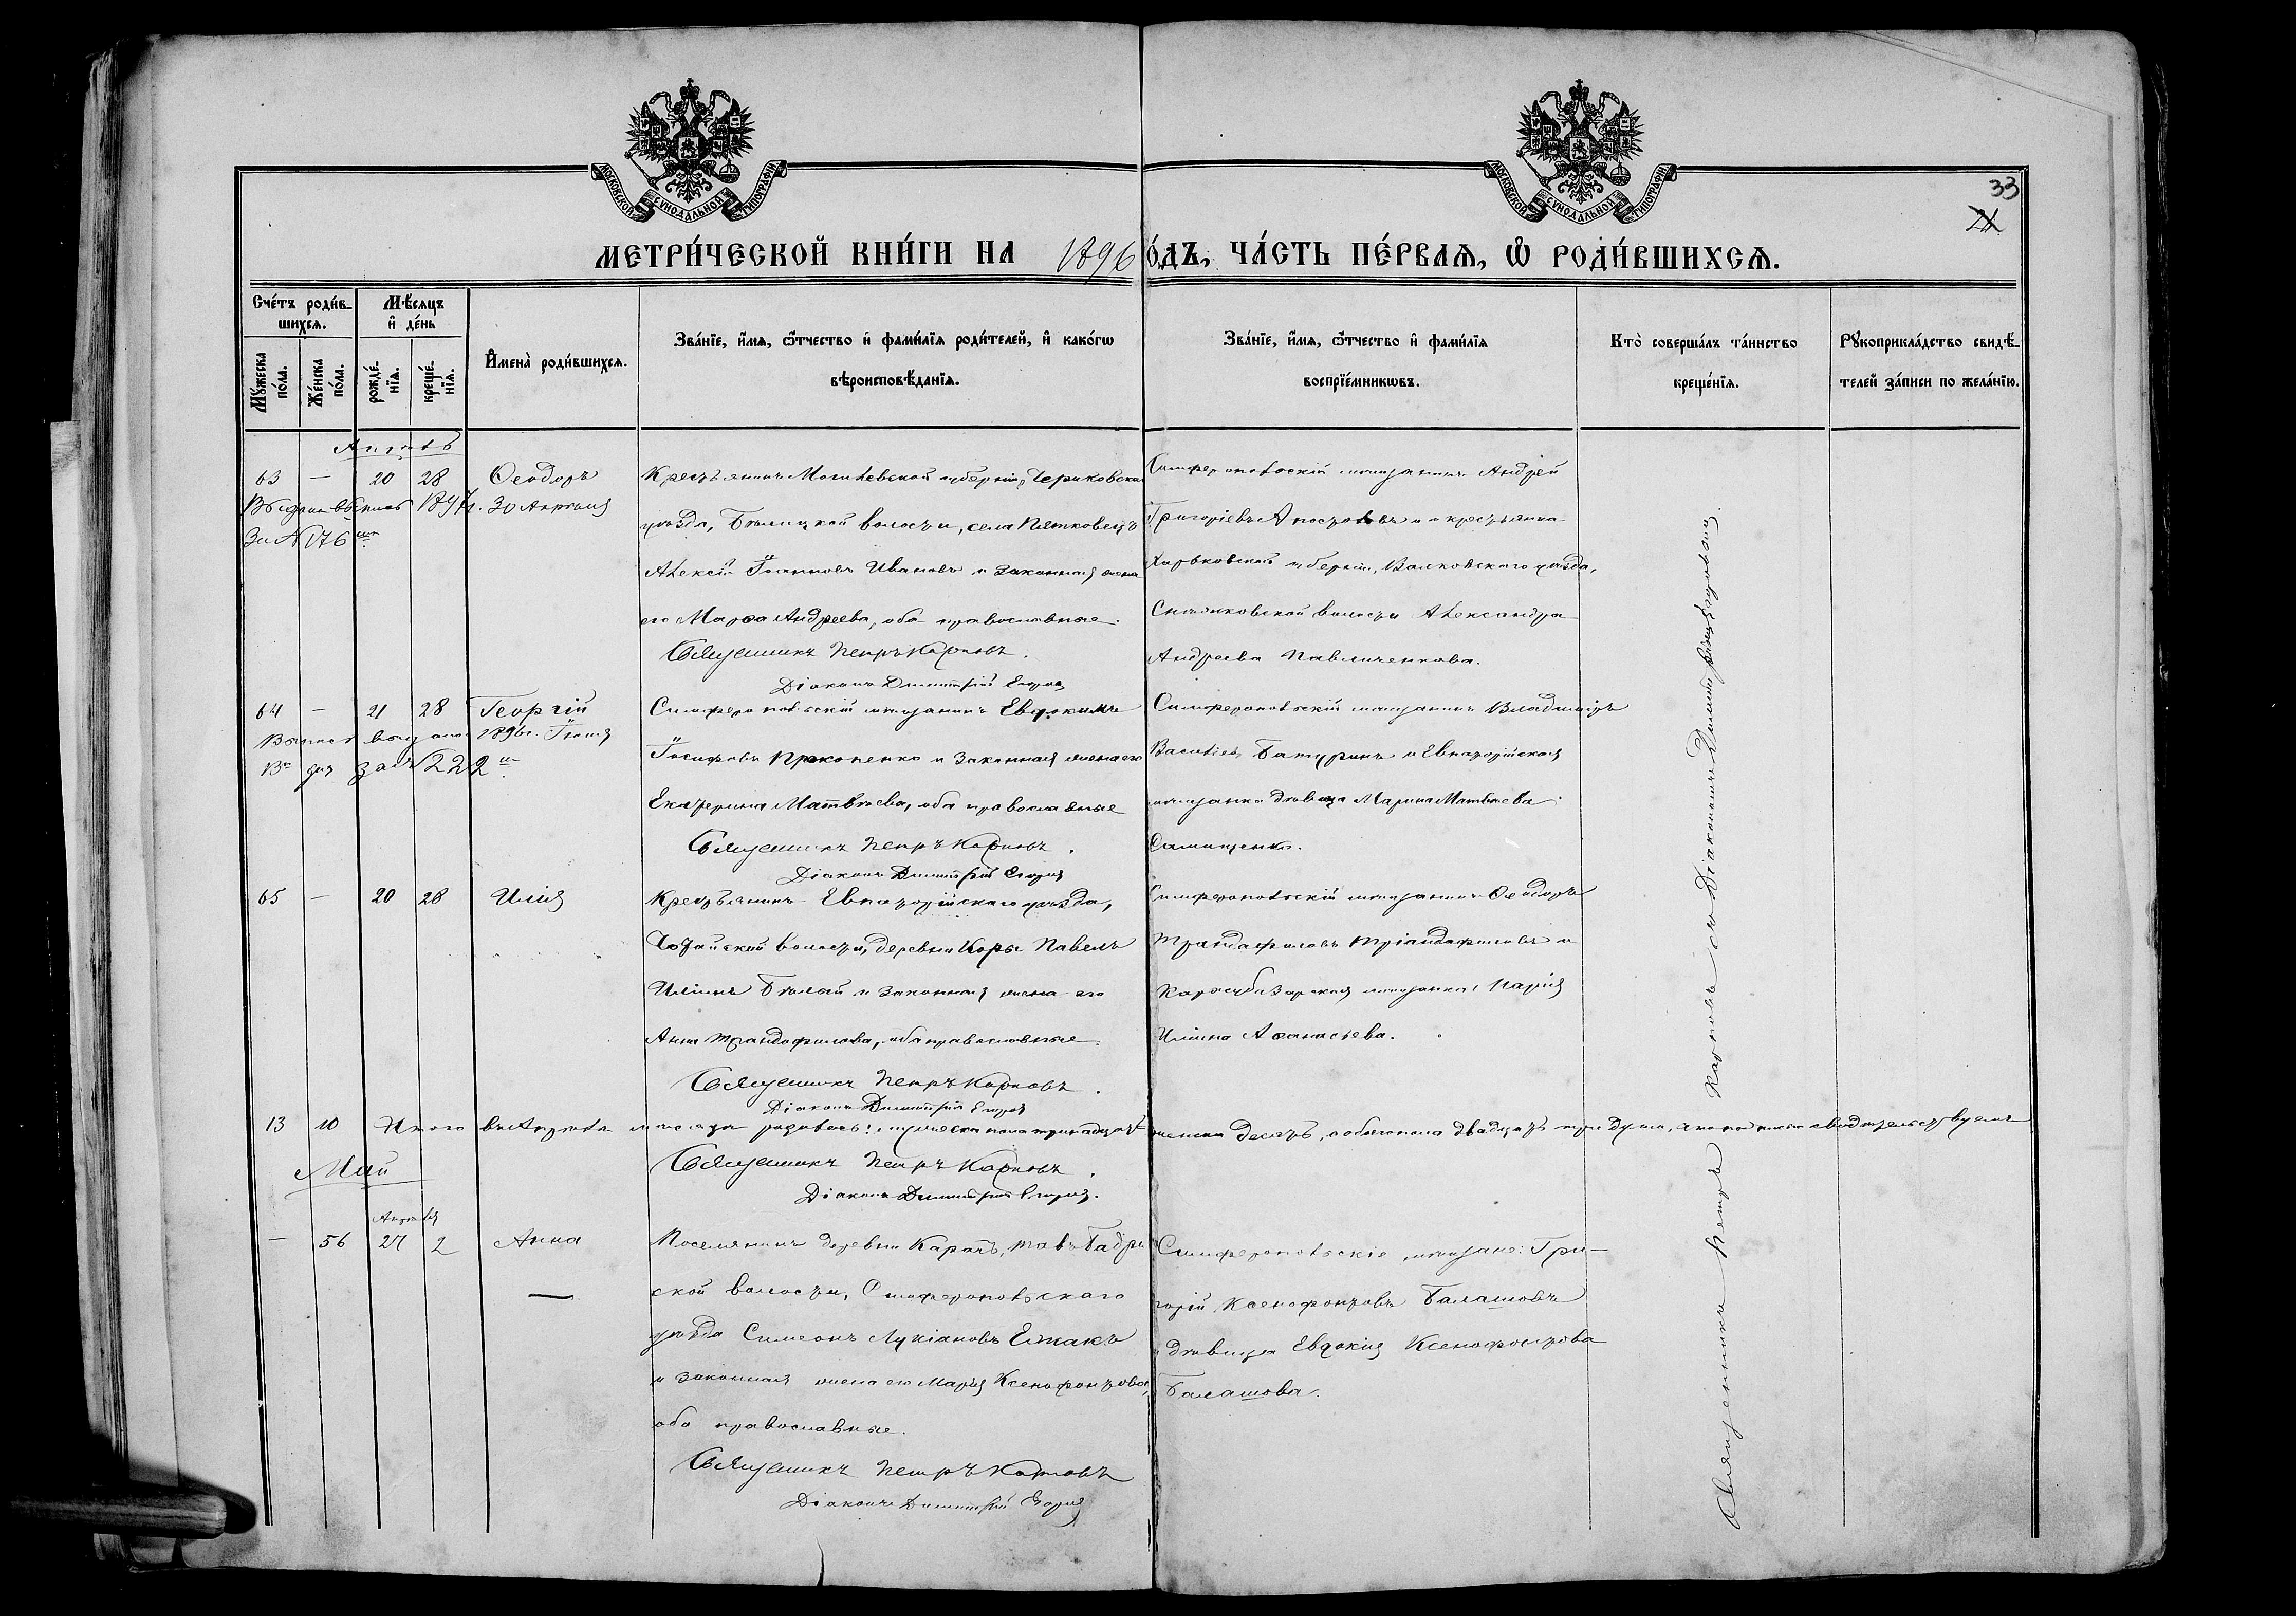 МОСКОВСКОЙ СѴНОДАЛЬНОЙ ТИПОГРАФІИ
МОСКОВСКОЙ СѴНОДАЛЬНОЙ ТИПОГРАФІИ
33
МЕТРИ́ЧЕСКОЙ КНИ́ГИ НА 1896 О́ДЪ, ЧА́СТЬ ПЕ́РВАѦ, Ѡ҆ РОДИ́ВШИХСѦ.
Сче́тъ роди́в-
шихсѧ.
Мѣ́сѧцъ
и҆ де́нь
Мꙋ́жеска
по́ла.
Же́нска
по́ла.
рожде́-
нїѧ.
креще́-
нїѧ.
И҆мена̀ роди́вшихсѧ.
Зва́нїе, и҆́мѧ, ѻ҆́тчество и҆ фами́лїѧ роди́телей, и҆ како́гѡ
вѣроисповѣ́данїѧ.
Зва́нїе, и҆́мѧ, ѻ҆́тчество и҆ фами́лїѧ
воспрїе́мникѡвъ.
Кто̀ соверша́лъ та́инство
креще́нїѧ.
Рꙋкоприкла́дство свидѣ́-
телей за́писи по жела́нїю.
Апрѣль
63 — 20 28 Ѳеодоръ
1897г. 30 Апрѣля
За № 176
Крестьянинъ Могилевской губерніи, Чериковска
уѣзда, волости, села
Алексій Іоанновъ Ивановъ и законная жена
его Марѳа Андреева, оба православные.
Священникъ Петръ Карповъ.
Діаконъ Димитрій
Симферопольскій мѣщанинъ Андрей
Григоріевъ Апостоловъ и крестьянка
Харьковской губерніи, Валковского уѣзда,
волости Александра
Андреева Павличенкова.
64 — 21 28 Георгій
1896г.
за № 222
Симферопольскій мѣщанинъ Евдокимъ
Іосифовъ Прокопенко и законная жена его
Екатерина Матвѣева, оба православные
Священникъ Петръ Карповъ.
Діаконъ Димитрій
Симферопольскій мѣщанинъ Владиміръ
Васильевъ Батуринъ и Евпаторійская
мѣщанка дѣвица Марина Матвѣева
65 — 20 28 Илія
Крестьянинъ Евпаторійскаго уѣзда,
волости, деревни Коры Павелъ
Иліинъ Бѣлый и законная жена его
Анна Трандафилова, оба православные.
Священникъ Петръ Карповъ.
Діаконъ Димитрій
Симферопольскій мѣщанинъ Ѳеодоръ
Трандафиловъ Тріандафиловъ и
Карасубазарская мѣщанка Марія
Иліина Аѳанасьева.
13 10 Итого въ Апрѣлѣ мѣсяцѣ родилось: мужеска пола тринадцать женска десять, обоего пола двадцать три души,
Священникъ Петръ Карповъ.
Діаконъ Димитрій
Май
Апрѣля
— 56 27 2 Анна
Поселянинъ деревни Карачъ,
ской волости, Симферопольскаго
уѣзда Симеонъ Лукіановъ
и законная жена его Марія Ксенофонтова,
оба православные.
Священникъ Петръ Карповъ
Діаконъ Димитрій
Симферопольскіе мѣщане: Гри-
горій Ксенофонтовъ Балашовъ
и дѣвица Евдокія Ксенофонтова
Балашова.
Священникъ Петръ Карповъ съ Діакономъ Димитріемъ